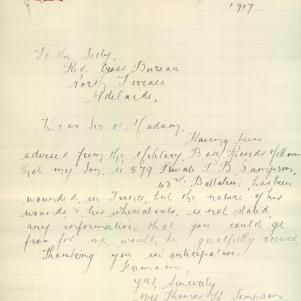 1917.
To the Secty,
Red Cross Bureau
North Terrace
Adelaide.
Dear Sir or Madam,
Having been
advised from the Military Base Records Melbourne
that my Son, No 579 Private T. B. Simpson,
43rd Battalion, has been
wounded, in France, but the nature of his
wounds & his whereabouts, is not stated
any information that you could get
from for me, would be greatfully received
Thanking you in anticipation
I remain,
yrs, Sincerely
Mrs Thomas H. Simpson